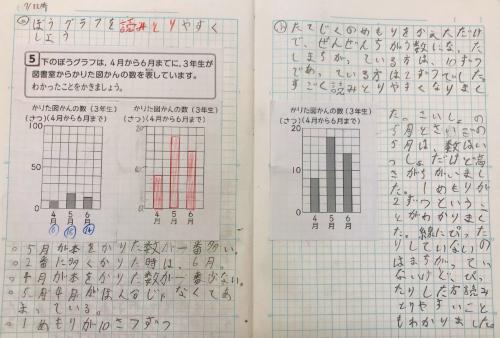 7/12
ぼうグラフを読みとりやすく
しよう
5 下のぼうグラフは、4月から6月までに、3年生が
図書室からかりた図かんの数を表しています。
わかったことをかきましょう。
かりた図かんの数(3年生)
(さつ)(4月から6月まで)
100
50
0
4月 5月 6月
かりた図かんの数(3年生)
(さつ)(4月から6月まで)
20
0
4月 5月 6月
○5月が本をかりた数が一番多い。
○2番に多くかりた時は、6月。
○4月が本をかりた数が一番少ない。
○5月4月がはんぶんじゃなくてあ
まっている。
○1めもりが10さつずつ
たてじくのめもりをかえただけ
で、ぜんぜんちがう数になった
しまちがっている方は、10ずつ
であっている方は2ずつでした。
すごく読みとりやすくなりまし
かりた図かんの数(3年生)
(さつ)(4月から6月まで)
20
10
0
4月 5月 6月
た。さいしょの
5月とさいごの
5月は、数はい
っしょだけど高
さがちがいまし
た。1めもりが
2ずつというこ
とがわかりまし
た。線にぴった
りしていないの
はまちがってい
ないけど、ぴっ
たりした方読み
とりやすいこと
もわかりました。